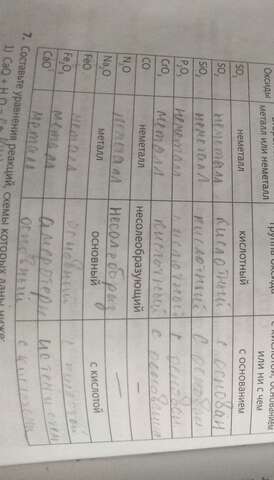 Оксиды металл или неметалл группа оксида с кислотой, основанием или ни с чем
SO₃ неметалл кислотный с основанием
SO₂ неметалл кислотный с основан
SiO₂ неметалл кислотный с основан
P₂O₅ неметалл кислотный с основан
CrO₃ металл кислотный с основани
CO неметалл несолеобразующий —
N₂O неметалл Несолеобразу —
Na₂O металл основный с кислотой
FeO металл основный
Fe₂O₃ металл амфотер
CaO металл основный с кислотой
7. Составьте уравнения реакций, схемы которых даны ниже:
1) CaO + H